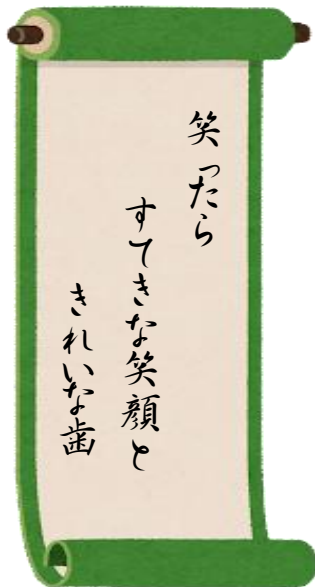 笑ったら
すてきな笑顔と
きれいな歯